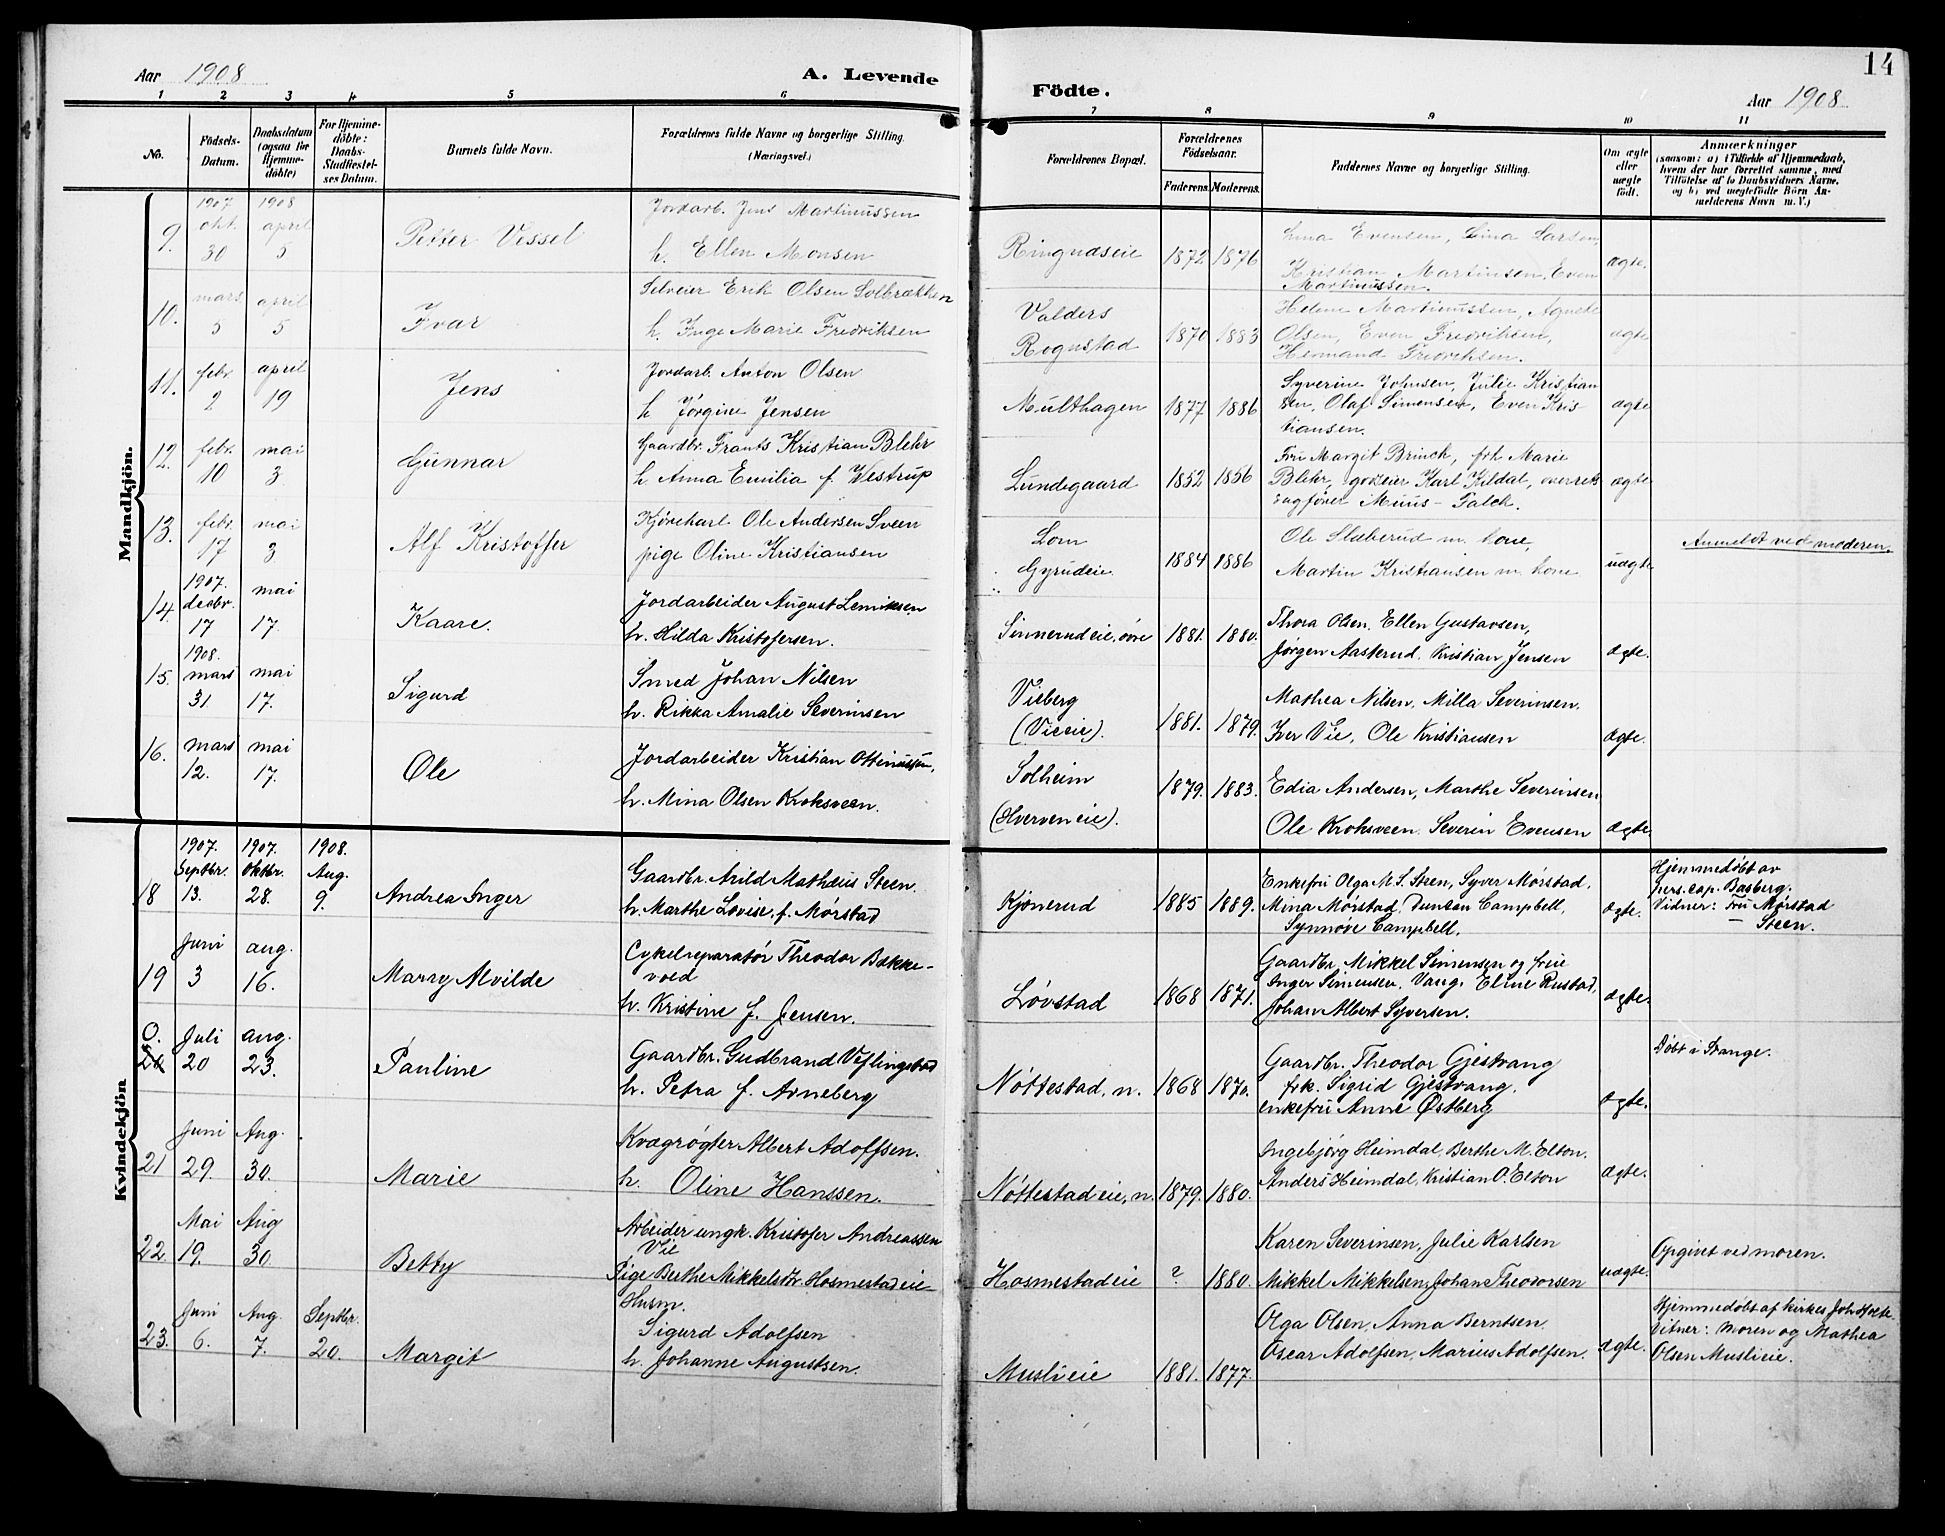 Aar 1908
A. Levende
Födte.
14
Aar 1908
1 2 3 4 5 6 7 8 9 10 11
No.
Födsels-
Datum.
Daabsdatum
(ogsaa for
Hjemme-
döbte)
For Hjemme-
döbte:
Daabs-
Stadfæstel-
ses Datum.
Barnets fulde Navn.
Forældrenes fulde Navne og borgerlige Stilling.
(Næringsvei.)
Forældrenes Bopæl.
Forældrenes
Födselsaar.
Faderens. Moderens.
Faddernes Navne og borgerlige Stilling.
Om ægte
eller
uægte
födt.
Anmærkninger
(saasom: a) i Tilfælde af Hjemmedaab,
hvem der har forrettet samme, med
Tilföielse af to Daabsvidners Navne,
og b) ved uægtefödte Börn An-
melderens Navn m. V.)
Mandkjön.
1907 1908
9. okt. 30 april 5
Petter Vessel
Jordarb. Jens Martinussen
h. Ellen Monsen
Ringnæseie 1872 1876
Lina Evensen, Lina Larsen,
Kristian Martinsen, Even
Martinussen.
ægte.
10. mars 5 april 5
Ivar
Selveier Erik Olsen Solbrækken
h. Inge Marie Fredriksen
Valders
Rognstad
1870 1883
Helene Martinussen, Agnete
Olsen, Even Fredriksen,
Hermand Fredriksen.
ægte
11. febr. 2 april 19
Jens
Jordarb. Anton Olsen
h. Jörgine Jensen
Multhagen 1877 1886
Syverine Johnsen, Julie Kristian
sen, Olaf Simensen, Even Kris-
tiansen.
ægte
12. febr. 10 mai 3
Gunnar
Gaardbr. Frants Kristian Blehr
h. Anna Emilia f. Westrup
Lundegaard 1852 1856
Fru Margit Brinch, frk Marie
Blehr, godseier Karl Kildal, overrets
sagförer Muus-Falck.
ægte
13. febr. 17 mai 3
Alf Kristoffer
Kjörekarl Ole Andersen Sveen
pige Oline Kristiansen
Lom
Gyrudeie.
1884 1886
Ole Slaberud m. kone,
Martin Kristiansen m. kone
uægte
Anmeldt ved moderen.
14. 1907. decbr. 17 mai 17.
Kaare.
Jordarbeider August Lemiksen
h. Hilda Kristofersen.
Sinnerudeie, övre 1881. 1880.
Thora Olsen. Ellen Gustavsen,
Jørgen Aasterud. Kristian Jensen
ægte.
15. 1908. mars 31 mai 17.
Sigurd
Smed Johan Nilsen
h. Rikka Amalie Severinsen
Vieberg
(Vieeie).
1881. 1879.
Mathea Nilsen, Milla Severinsen.
Iver Vie, Ole Kristiansen
ægte.
16. mars 12. mai 17.
Ole
Jordarbeider Kristian Ottinussen,
h. Mina Olsen Kroksveen.
Solheim
(Hverveneie).
1879. 1883.
Edia Andersen, Marthe Severinsen
Ole Kroksveen. Severin Evensen
ægte.
Kvindekjön
1907. 1907. 1908.
18 Septbr. 13. Oktbr. 28. Aug. 9.
Andrea Inger
Gaardbr. Arild Mathæus Steen.
h. Marthe Lovise, f. Mørstad
Kjønerud 1885 1889.
Enkefru Olga M. S. Steen, Syver Mørstad,
Mina Mørstad, Duncan Campbell,
Synnøve Campbell.
ægte.
Hjemmedøbt av
pers. cap. Basberg.
Vidner: Fru Mørstad
— Steen.
19 Juni 3 aug. 16.
Marry Alvilde
Cykelreparatør Theodor Bække-
vold
h. Kristine f. Jensen.
Løvstad 1868 1871.
Gaardbr. Mikkel Simensen og frue
Inger Simensen, Vang. Eline Rustad,
Johan Albert Syversen.
ægte.
O.
20 Juli 20 aug. 23.
Pauline
Gaardbr. Gudbrand Veflingstad
h. Petra f. Arneberg
Nøttestad, n. 1868 1870.
Gaardbr. Theodor Gjestvang
frk. Sigrid Gjestvang,
enkefru Anne Østberg
ægte.
Døbt i Stange.
21 Juni 29. Aug. 30.
Marie
Kvægrøgter Albert Adolfsen.
h. Oline Hanssen.
Nøttestadeie, n. 1879. 1880.
Ingebjørg Heimdal, Berthe M. Elton.
Anders Heimdal, Kristian O. Elton
ægte.
22. Mai 19. Aug 30.
Betty
Arbeider ungk. Kristofer Andreassen
Vie
Pige Berthe Mikkelsdtr. Hosmestadeie
Hosmestadeie ? 1880.
Karen Severinsen, Julie Karlsen
Mikkel Mikkelsen, Johan Theodorsen
uægte.
Opgivet ved moren.
23. Juni 6. Aug. 7. Septbr. 20.
Margit
Husm.
Sigurd Adolfsen
h. Johanne Augustsen.
Muslieie 1881. 1877.
Olga Olsen, Anna Berntsen.
Oscar Adolfsen, Marius Adolfsen.
ægte.
Hjemmedøbt af kirkes. Joh Holte.
Vitner: Moren og Mathea
Olsen Muslieie.